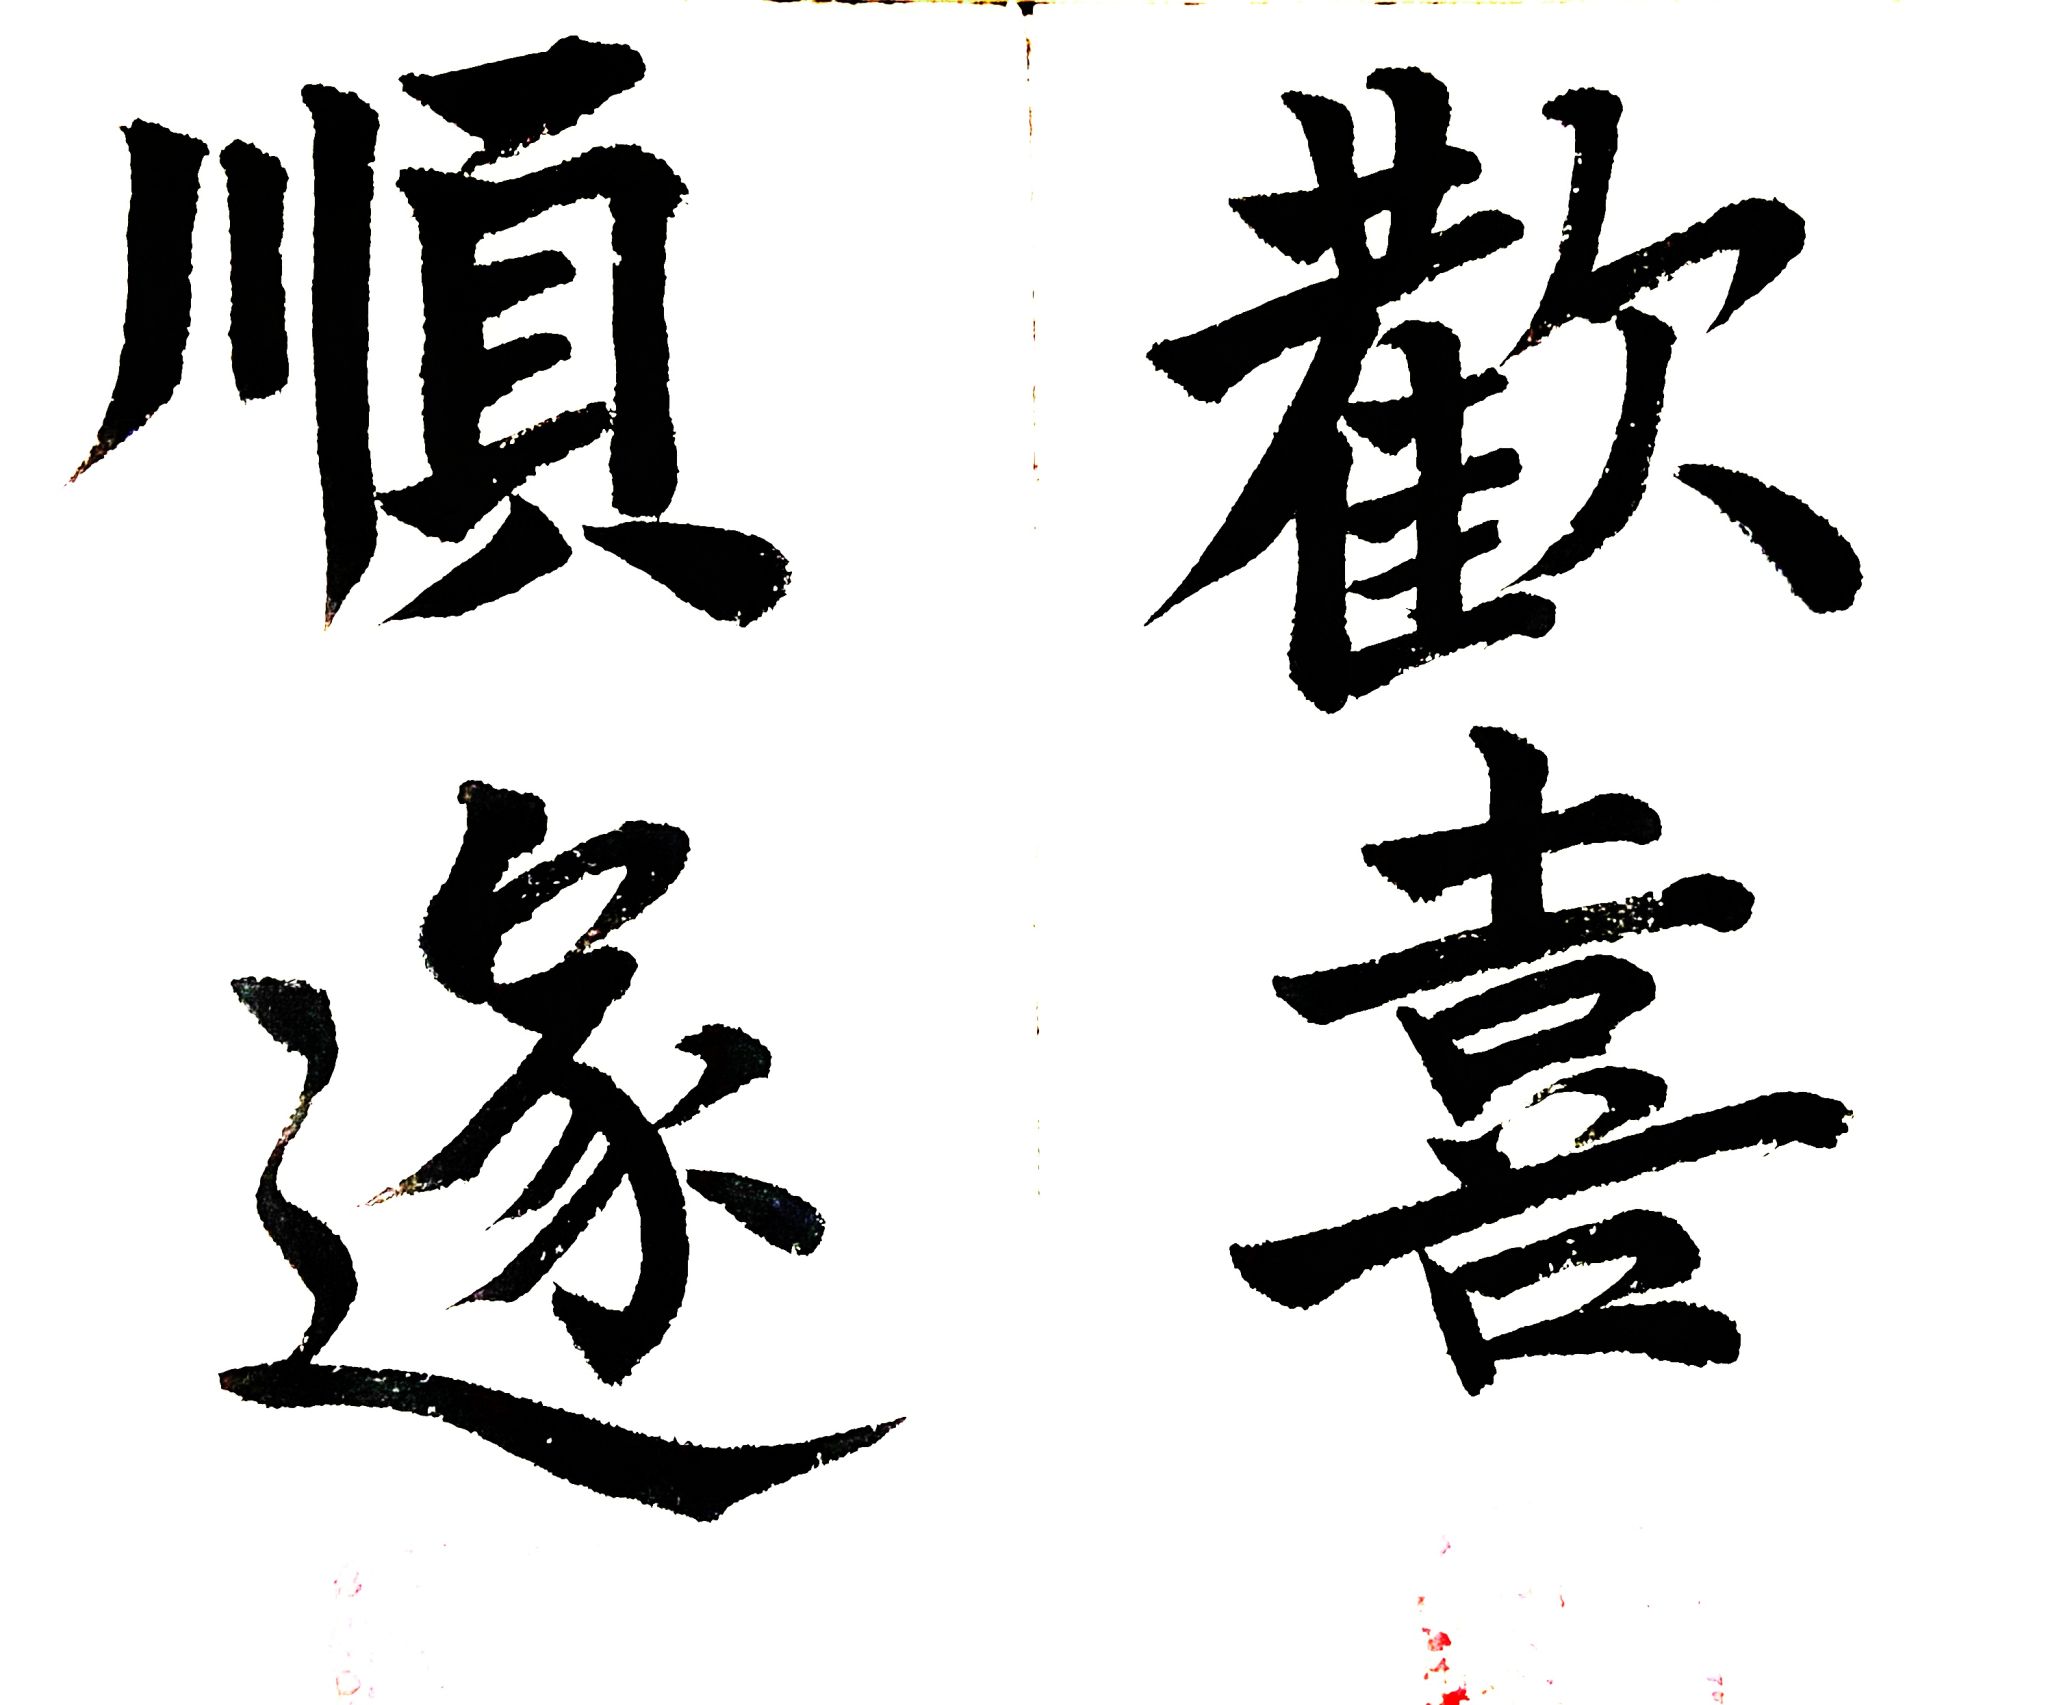 歡喜
順遂